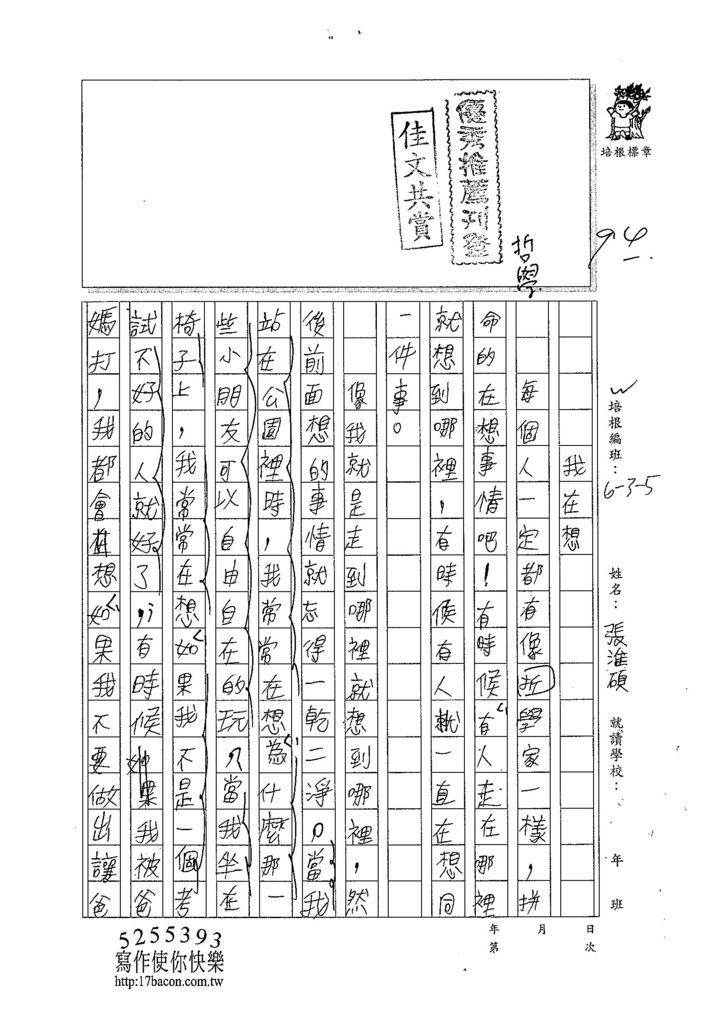 優秀推薦刊登
佳文共賞
培根標章
94
哲學
培根編班：6-3-5
姓名：張淮碩
就讀學校：
年 班
年 月 日
第 次
我在想
每個人一定都有像折學家一樣，拼
命的在想事情吧！有時候有人走在哪裡
就想到哪裡，有時候有人就一直在想同
一件事。
像我就是走到哪裡就想到哪裡，然
後前面想的事情就忘得一乾二淨。當我
站在公園裡時，我常常在想為什麼那一
些小朋友可以自由自在的玩，當我坐在
椅子上，我常常在想如果我不是一個考
試不好的人就好了，有時候如果我被爸
媽打，我都會在想如果我不要做出讓爸
5255393
寫作使你快樂
http:17bacon.com.tw